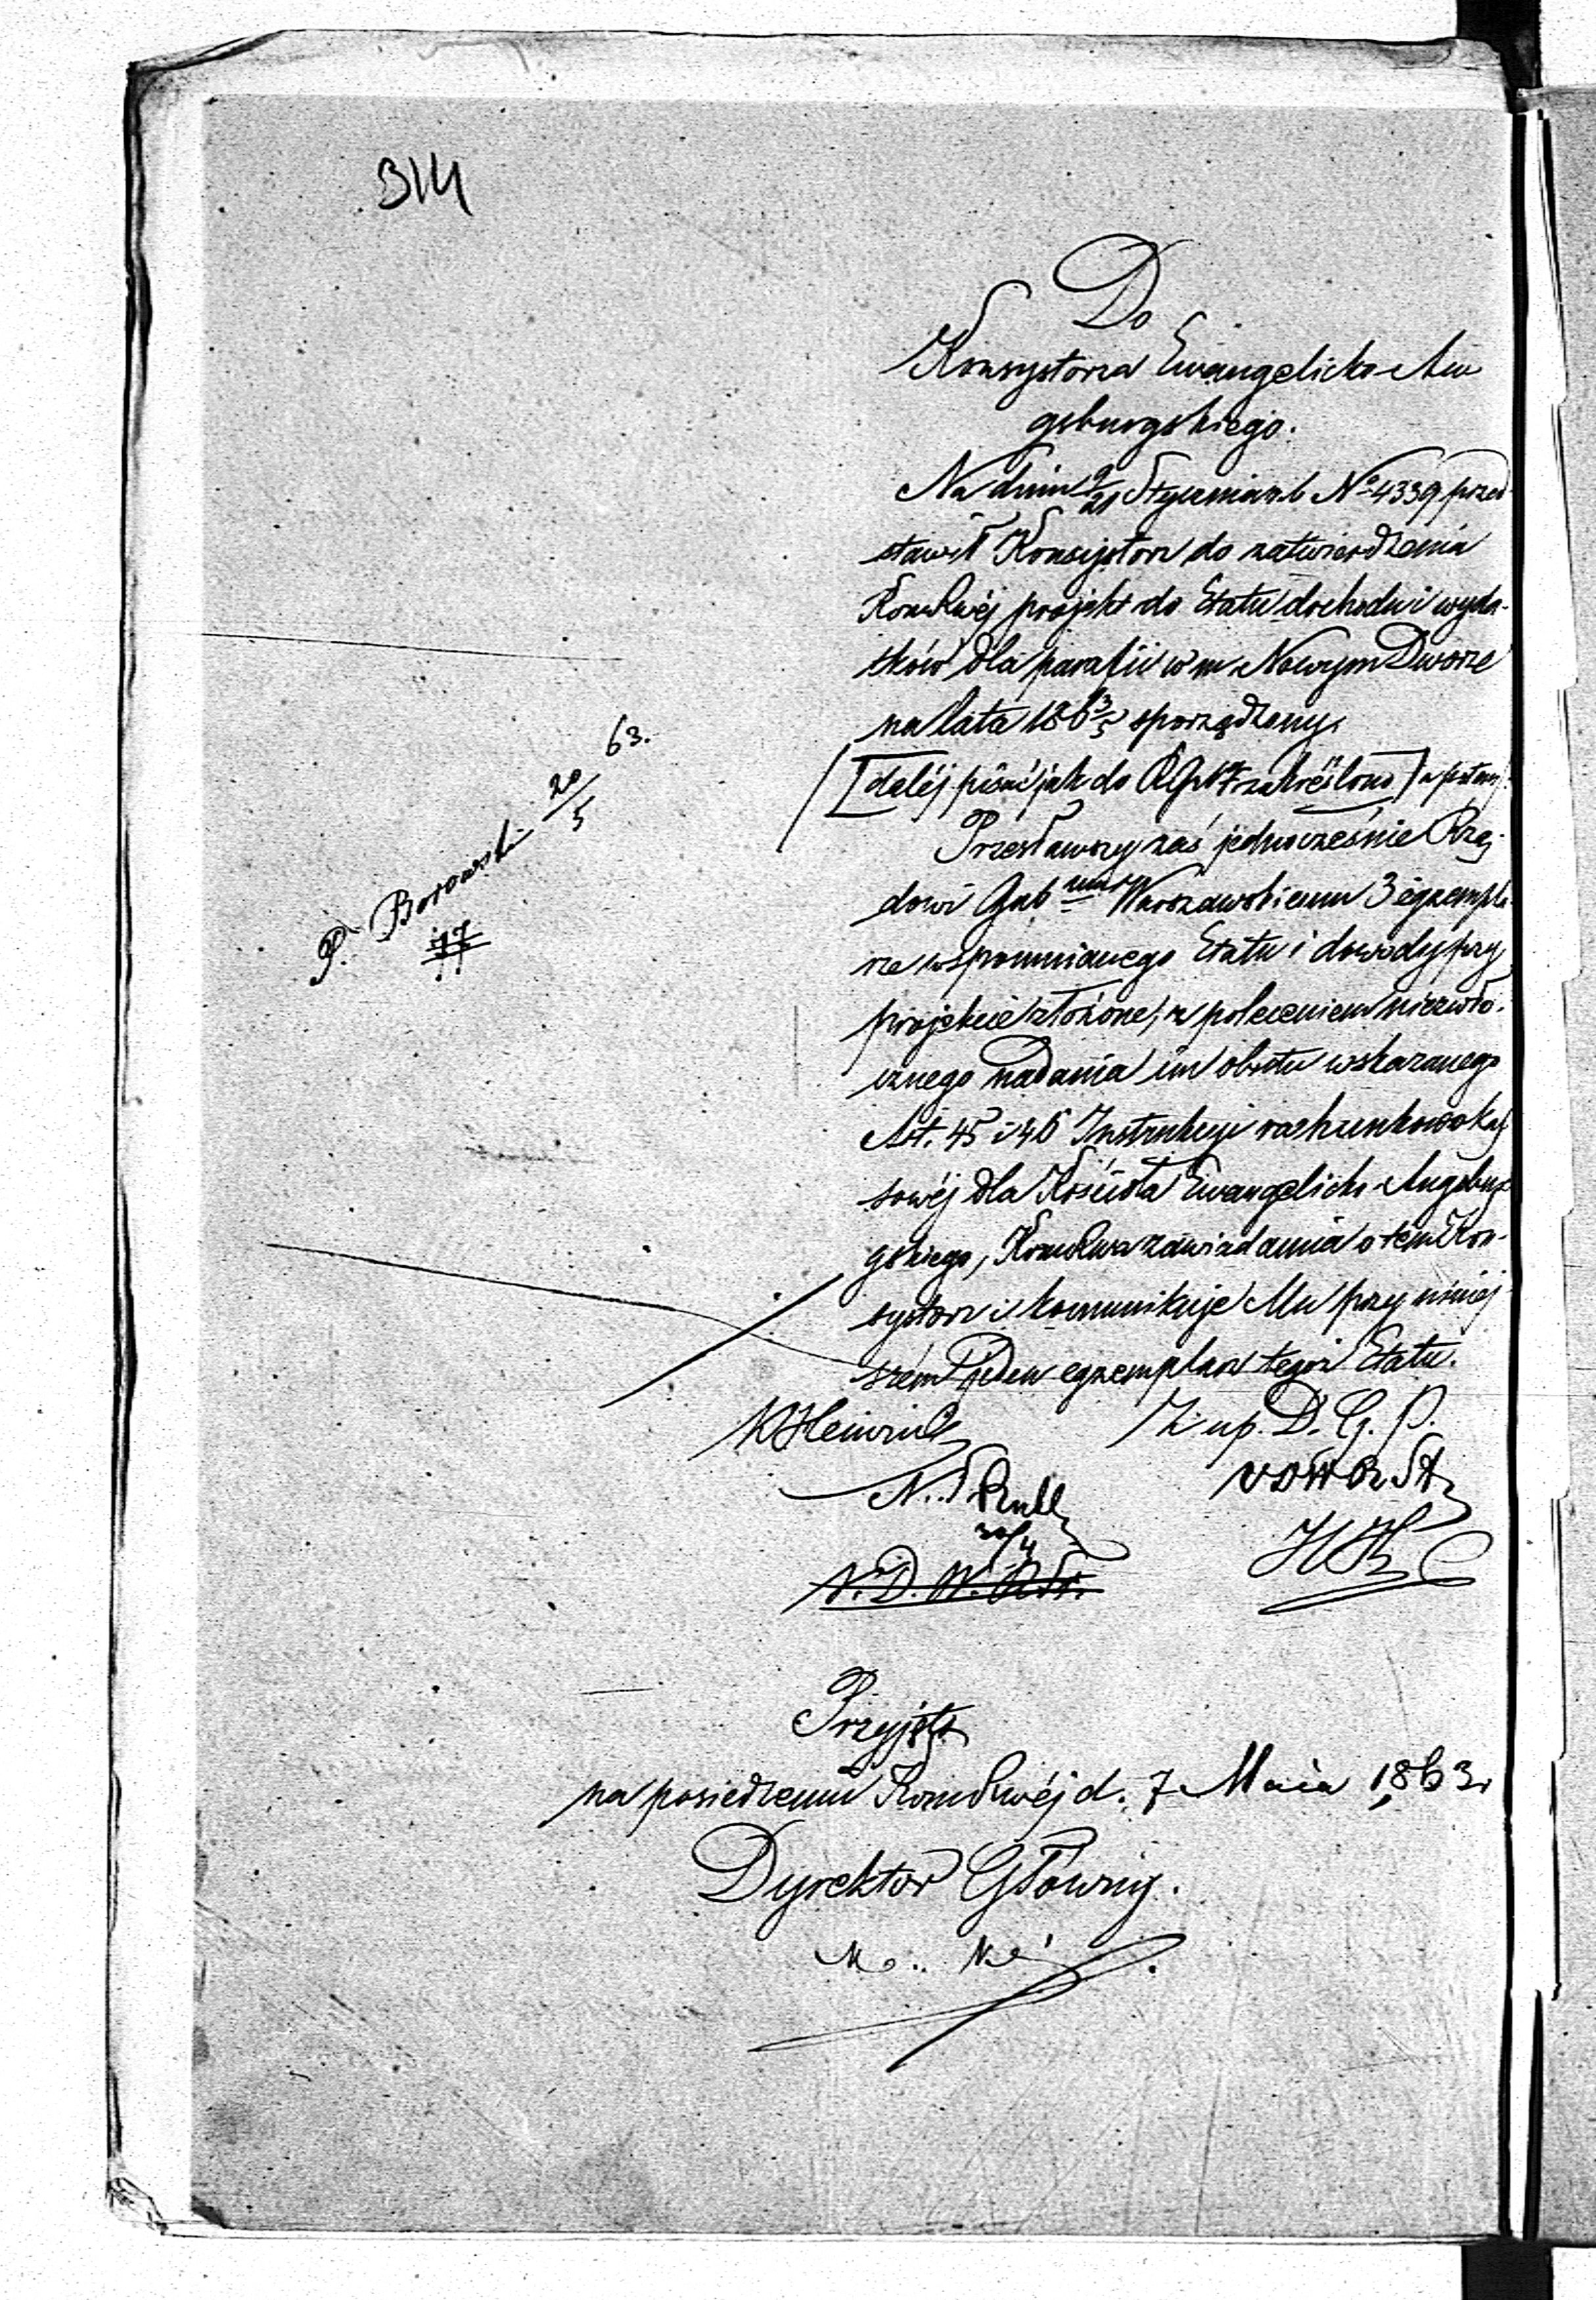 314
Do
Konsystorza Ewangelicko-Au
gsburgskiego.
Na dniu 9/21 Stycznia r. b. No 4339 przed-
stawił Konsystorz do zatwierdzenia
KomRwéj projekt do Etatu dochodu i wyda-
tków dla parafii w m. Nowym Dworze
na lata 186 3/5 sporządzony.
[dalej pisać jak do RGbo zakréślono] a potem
Przesławszy zaś jednocześnie Rzą-
dowi Gub mu Warszawskiemu 3 egzempla-
rze wspomnianego Etatu i dowody przy
projekcie złożone, z poleceniem niezwło-
cznego nadania im obrotu wskazanego
Art. 45 i 46 Instrukcyi rachunkowo kas
sowéj dla Kościoła Ewangelicko-Augsbur
gskiego, KomRwa zawiadamia o tem Kon-
systorz i komunikuje Mu przy niniej
szém jeden egzemplarz tegoż Etatu.
P. Borowski 20/5 63.
77
KHeinrich
Z up. D. G. P.
N. S. Rull
30/4
N. D. W.
Przyjęto
na posiedzeniu KomRwéj d. 7 Maia 1863 r
Dyrektor Główny.